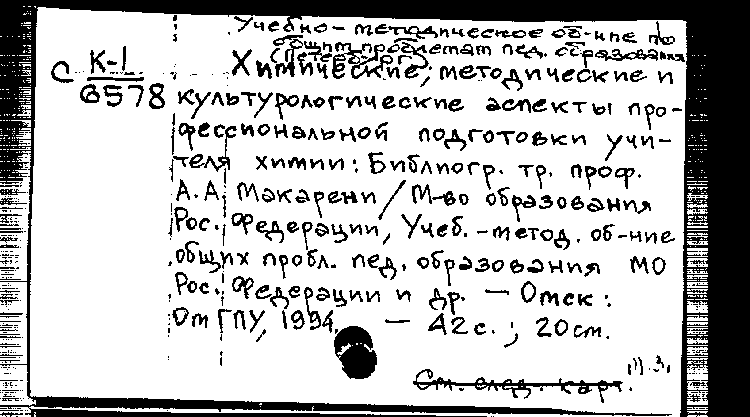 Учебно-методическое об-ние по
общим проблемам пед. образования
(Петербург)
С К-1
6578
Химические, методические и
культурологические аспекты про-
фессиональной подготовки учи-
теля химии: Библиогр. тр. проф.
А.А. Макарени / М-во образования
Рос. Федерации, Учеб.-метод. об-ние
общих пробл. пед. образования МО
Рос. Федерации и др. — Омск:
ОмГПУ, 1994. — 42с.; 20см.
См. след. карт.